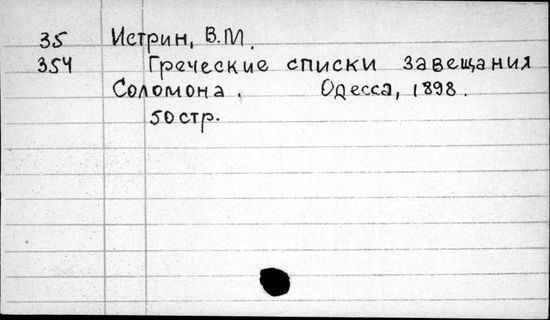 35 Истрин, В.М.
354 Греческие списки Завещания
Соломона. Одесса, 1898.
50стр.